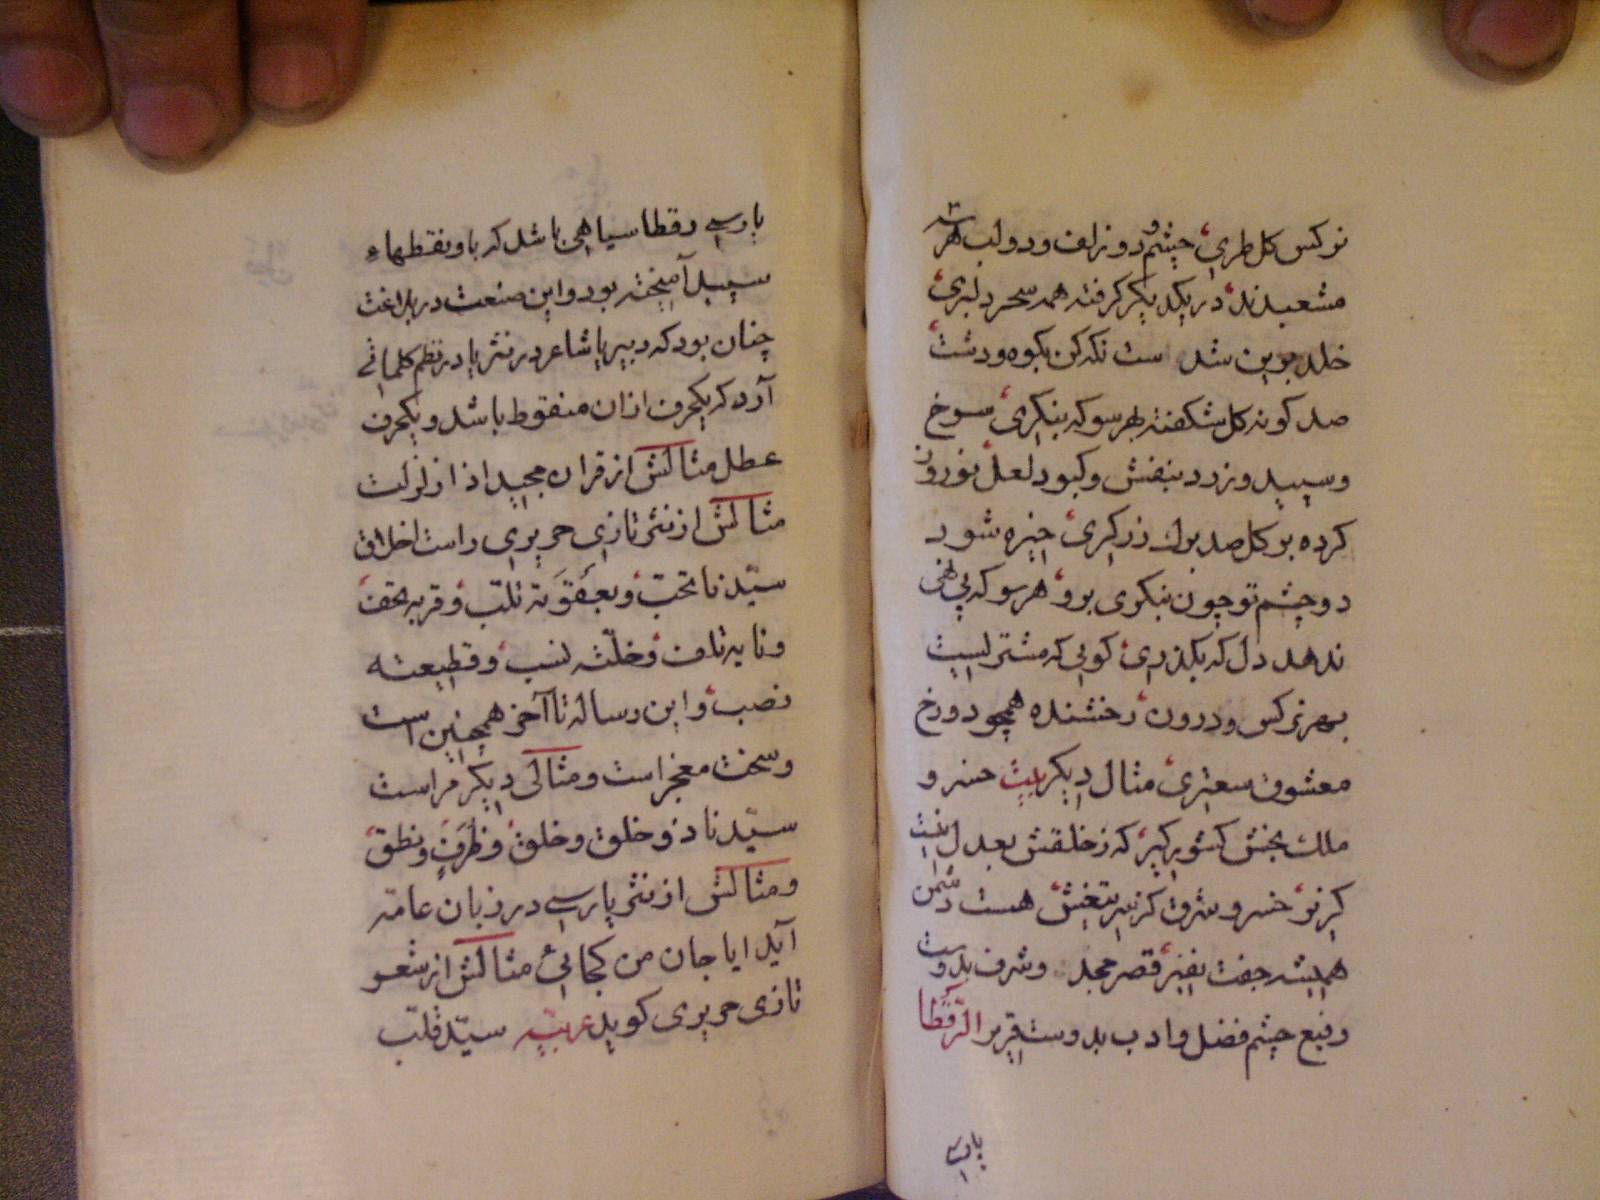 نرکس کل طری چشم و دو زلف و دو لب هر سه
مشعبدند در یکدیکر کرفته همه سحر دلبری
خلد برین شد ست نکه کن بکوه و دشت
صد کونه کل شکفته بهر سو که بنکری سرخ
و سپید و زرد بنفش و کبود لعل نوروز
کرده بر کل صد برک زرکری خیره شود
دو چشم تو چون بنکری برو هر سو که پی نهی
ندهد دل که بکذری کویی که مشتریست
بهر نرکس و درون رخشنده همچو دو رخ
معشوق سعتری مثال دیکر بیت خسرو
ملک بخش کشور کیر که ز خلقش بعدل نیست
کزنو خسرو شرق کز سر تیغش هست دشمن
همیشه جفت نفیر قصر مجد و شرف بدوست
رفیع چشم فضل و ادب بدوست قریر الرقطا
پارسی
پارسی رقطا سیاهی باشد که با و نقطهاء
سپید آمیخته بود و این صنعت در بلاغت
چنان بود که دبیر یا شاعر در نثر یا در نظم کلماتی
آرد که یکحرف ازان منقوط باشد و یکحرف
عطل مثالش از قران مجید اذا زلزلت
مثالش از نثر تازی حریری راست اخلاق
سیدنا تحب و بعقوته تلب و قربه تحف
و نایه تلف و خلته نسب و قطیعته
نصب و این رساله تا آخر همچنین است
و سخت معجز است و مثالی دیکر مراست
سیدنا ذو خلق و خلق و ظرف و نطق
و مثالش از نثر پارسی در زبان عامه
آید ایا جان من کجائی مثالش از شعر
تازی حریری کوید عربیه سید قلب